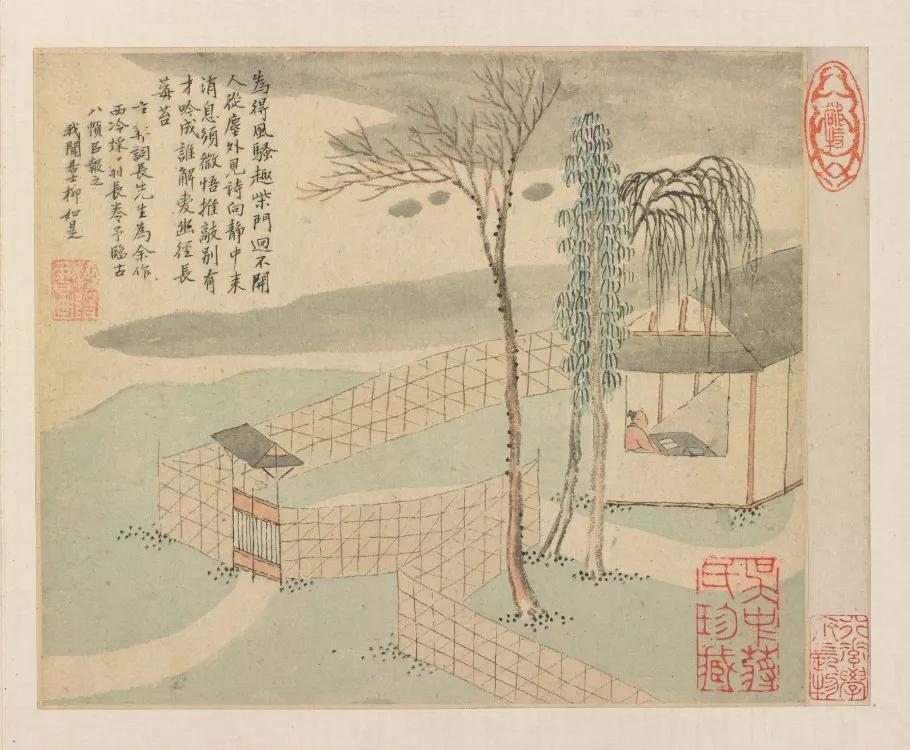 為得風騷趣柴門迥不開
人從塵外見詩向靜中来
消息須微悟推敲别有
才吟成誰解愛幽徑長
莓苔
詞長先生為余作
西泠採長卷予臨古
八幀以報之
我聞居士柳如是
吳中蔣
氏珍藏